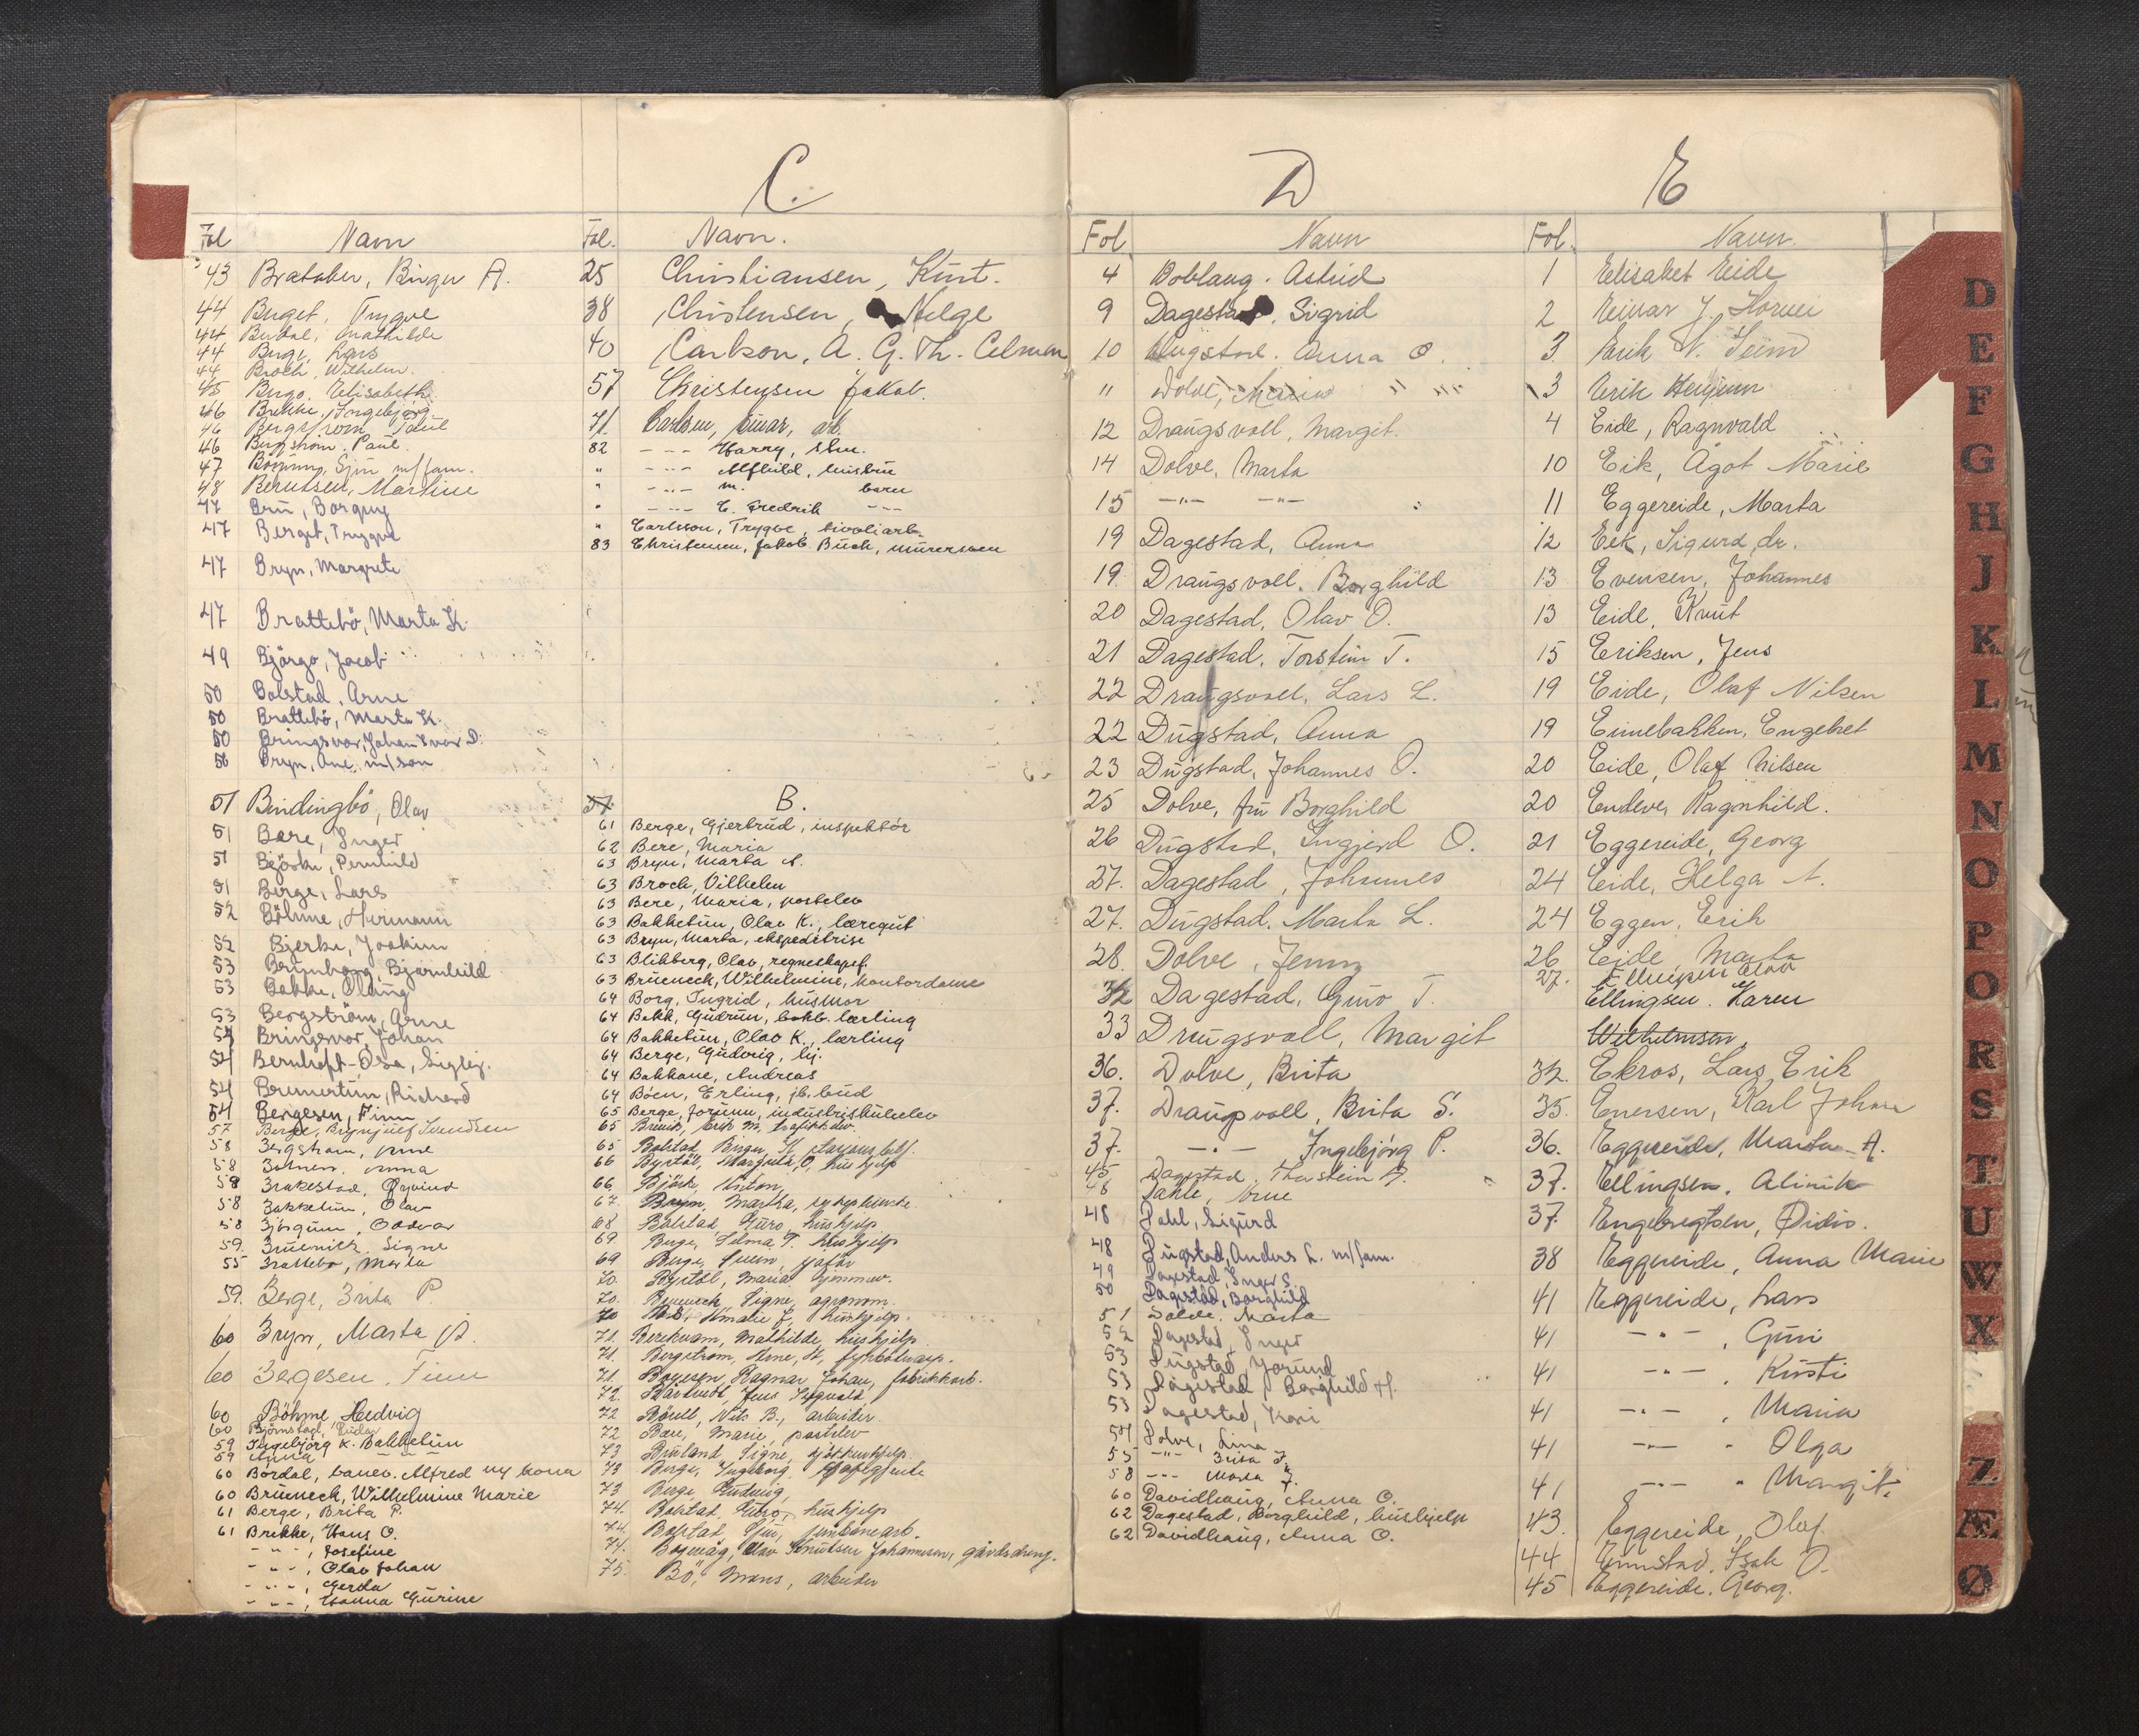 C.
D
E
Fol Navn
43 Birger A.
44 Berget, Trygve
44 Mathilde
44 Berge, Lars
44 Broch, Wilhelm.
45 Elisabeth
46 Brekke, Ingebjørg
46 Bergstrøm Paul
46 Bergstrøm. Paul
47 m/fam.
48 Berntsen, Martine
47 Borguy
47 Berget, Trygve
47 Bryn, Margrete
47 Brattebö, Marta K.
49 Bjørgo, Jacob
50 Bolstad, Arne
50 Brattebö, Marta K.
50 Bringsvor, Johan Ivar D.
50 Bryn, Ane m/son
51 Bindingbö, Olav
51 Bere, Inger
51
51 Berge, Lars
52 Böhme, Hermann
52 Bjerke, Joakim
53 Brynborg, Bjarnhild
53 Bakke, Olaug
53 Bergström, Arne
54 Bringsvor, Johan
54 Bernhoft-Osa,
54 Richard
54 Bergesen, Finn
57 Berge, Brynjulf Svendsen
58 Bergstrøm, Arne
58 Anna
58 Brakestad, Øyvind
58 Bakketun, Olav
58 Oddvar
59. Signe
55 Brattebø, Marta
59. Berge, Brita P.
60 Bryn, Marta
60 Bergesen, Finn
60 Böhme, Hedvig
60 Björnstad,
59 Ingebjörg K. Bakketun
59 Anna
60 Bördal, Alfred og kona
60 Brüeneck, Wilhelmine Marie
61 Berge, Brita P.
61 Brekke, Hans O.
- " - , Josefine
- " - , Olav Johan
- " - , Gerda
- " - , Hanna Gurine
Fol. Navn.
25 Christiansen, Kurt.
38 Christensen, Helge
40 Carlson, A. G. Th.
57 Christensen Jakob.
71. Carlsen, Einar, arb.
82 - " - Harry,
" - " - Alfhild, husfru
" - " - m. barn
" - " - E. Fredrik - " -
" Carlsson, Trygve, tivoliarb.
83 Christensen, Jakob Buch, murersven
B.
61 Berge, Gjertrud, inspektör
62 Bere, Maria
63 Bryn, Marta A.
63 Broch, Vilhelm
63 Bere, Maria, postelev
63 Bakketun, Olav K., læregut
63 Bryn, Marta, ekspeditrise
63 Blikberg, Olav, regneskapsf.
63 Brüeneck, Wilhelmine, kontordame
64 Borg, Ingrid, husmor
64 Bekk, Gudrun, lærling
64 Bakketun, Olav K., lærling
64 Berge, Gudvig, hj.
64 Bakkane, Andreas
64 Böen, Erling, jb. bud
65 Berge, Jorunn, industriskuleelev
65
65 Bolstad, Birger
66 Margreta O, hushjelp
66 Anton
67. Bryn, Martha,
68 Bolstad, Guro, hushjelp
69. Berge, Selma T. hushjelp
69 Berge, Svein, sjåför
70. Maria
70. Brüeneck, Signe, agronom.
70 Amalie J., hushjelp.
71. Berekvam, Mathilde, hushjelp
71. Bergström, Arne,
71. Ragnar Johan, fabrikkarb.
72. Jens
72 Nils B., arbeider.
72 Bere, Marie, postelev
73 Bruland, Signe, kjökkenhjelp.
73 Berge, Ingeborg.
73 Berge, Gudvig,
74. Bolstad, Guro, hushjelp
74.
74. Olav Knutsen Johannesen, gårdsdreng.
75. Bö, Mons, arbeider
Fol. Navn
4 Astrid
9 Dagestad, Sigrid
10 Dugstad. Anna O.
11 Dolve, Maria
12 Draugsvoll, Margit.
14 Dolve, Marta
15 - " - - " -
19 Dagestad, Anna
19 Draugsvoll. Borghild
20 Dagestad, Olav O.
21 Dagestad, Torstein T.
22 Draugsvoll, Lars L.
22 Dugstad, Anna
23 Dugstad, Johannes O.
25 Dolve, fru Borghild
26 Dugstad, Ingjerd O.
27. Dagestad, Johannes
27. Dugstad, Marta L.
28. Dolve, Jenny
32 Dagestad, Guro T.
33 Draugsvoll, Margit
36. Dolve, Brita
37. Draugsvoll, Brita S.
37. - " - Ingebjørg P.
45 Dagestad, Thorstein
48 Dahle, Arne
48 Dahl, Sigurd
48 Dugstad, Anders L. m/fam.
49 Dagestad, Inger S.
50 Dagestad, Borghild
51 Dolve. Marta
52 Dagestad, Inger
53 Dugstad, Jorund
53 Dagestad, Borghild H.
53 Dagestad, Kari
54 Dolve, Lina
55 - " - Brita J.
58 - " - Marta J.
60 Davidhaug, Anna O.
62 Dagestad, Borghild, hushjelp
62 Davidhaug, Anna O.
Fol. Navn.
1 Elisabet Eide
2 Einar J. Horvei
3 Erik
3 Erik Herjum
4 Eide, Ragnvald
10 Eik, Ågot Marie
11 Eggereide, Marta
12 Eek, Sigurd, dr.
13 Evensen, Johannes
13 Eide, Knut
15 Eriksen, Jens
19 Eide, Olaf Nilsen
19 Engebret
20 Eide, Olaf Nilsen
20 Endeve, Ragnhild.
21 Eggereide, Georg
24 Eide, Helga A.
24 Eggen, Erik
26 Eide, Marta
27. Ellingsen Olav
Ellingsen. Karen
Wilhelmsen.
32. Ekros, Lars Erik
35. Enersen, Karl Johan
36. Eggereide, Marta A.
37. Ellingsen,
37. Engebregtsen,
38 Eggereide, Anna Marie
41 Eggereide, Lars
41 - " - , Guri
41 - " - , Kirsti
41 - " - , Maria
41 - " - " Olga
41 - " - " Margit.
43. Eggereide, Olaf
44 Isak O.
45 Eggereide. Georg.
D
E
F
G
H
J
K
L
M
N
O
P
O
R
S
T
U
W
X
Z
Æ
Ø